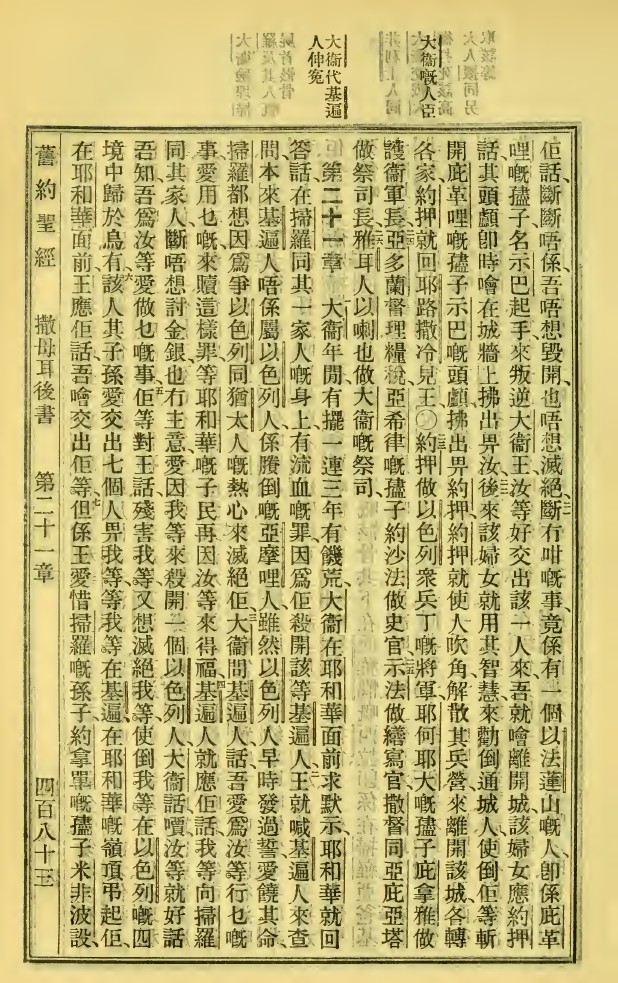 大衞嘅人臣
大衞代基遍
人伸冤
佢話、斷斷唔係、吾唔想毀開、也唔想滅絕、斷冇咁嘅事、竟係有一個以法蓮山嘅人、卽係庇革
哩嘅孻子、名示巴、起手來叛逆大衞王、汝等好交出該一人來、吾就會離開城、該婦女應約押
話、其頭顱卽時噲在城牆上拂出畀汝、後來該婦女就用其智慧、來勸倒通城人、使倒佢等斬
開庇革哩嘅孻子示巴嘅頭顱、拂出畀約押、約押就使人吹角、解散其兵營、來離開該城、各轉
各家、約押就回耶路撒冷見王〇約押做以色列衆兵丁嘅將軍、耶何耶大嘅孻子庇拿雅做
護衞軍長、亞多蘭督理糧稅、亞希律嘅孻子約沙法做史官、示法做繕寫官、撒督同亞庇亞塔
做祭司長、雅耳人以喇也做大衞嘅祭司、
第二十一章 大衞年間有擺一連三年有饑荒、大衞在耶和華面前求默示、耶和華就回
答話、在掃羅同其一家人嘅身上、有流血嘅罪、因爲佢殺開該等基遍人、王就喊基遍人來查
問、本來基遍人唔係屬以色列人、係賸倒嘅亞摩哩人、雖然以色列人早時發過誓愛饒其命、
掃羅都想、因爲爭以色列同猶太人嘅熱心、來滅絕佢、大衞問基遍人話、吾愛爲汝等行乜嘅
事、愛用乜嘅來贖這樣罪、等耶和華嘅子民再因汝等來得福、基遍人就應佢話、我等向掃羅
同其家人、斷唔想討金銀、也冇主意愛因我等來殺開一個以色列人、大衞話、嘪汝等就好話
吾知、吾爲汝等愛做乜嘅事、佢等對王話、殘害我等、又想滅絕我等、使倒我等在以色列嘅四
境中歸於烏有、該人其子孫愛交出七個人畀我等、等我等在基遍在耶和華嘅嶺頂弔起佢、
在耶和華面前、王應佢話、吾噲交出佢等、但係王愛惜掃羅嘅孫子、約拿單嘅孻子米非波設、
舊約聖經 撒母耳後書 第二十一章 四百八十三